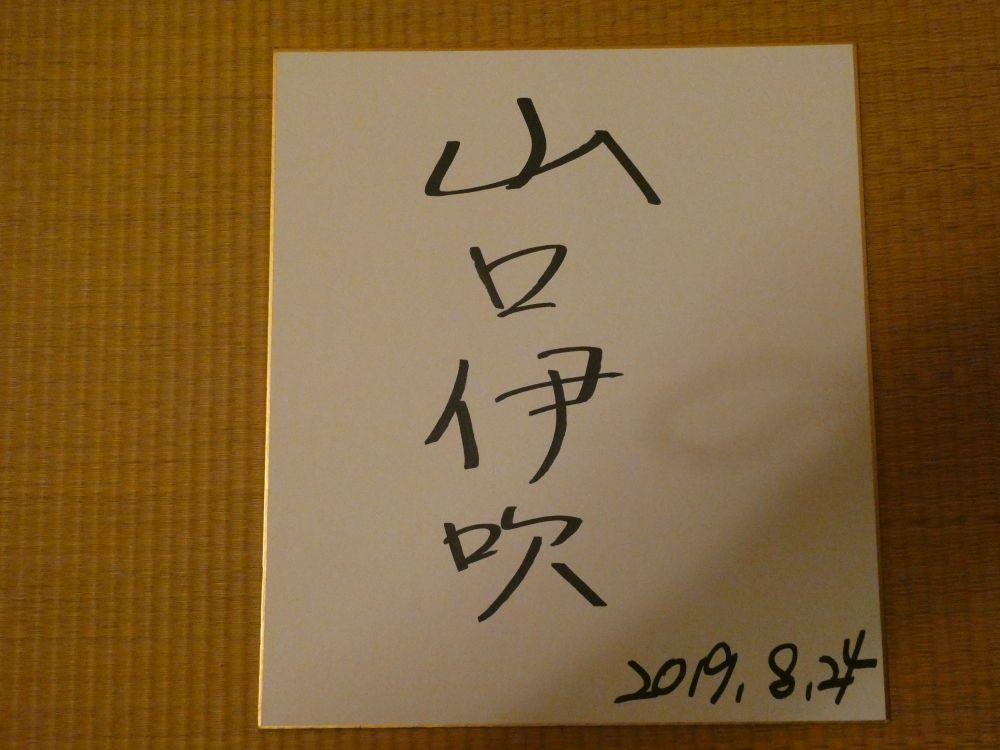 山口伊吹
2019.8.24